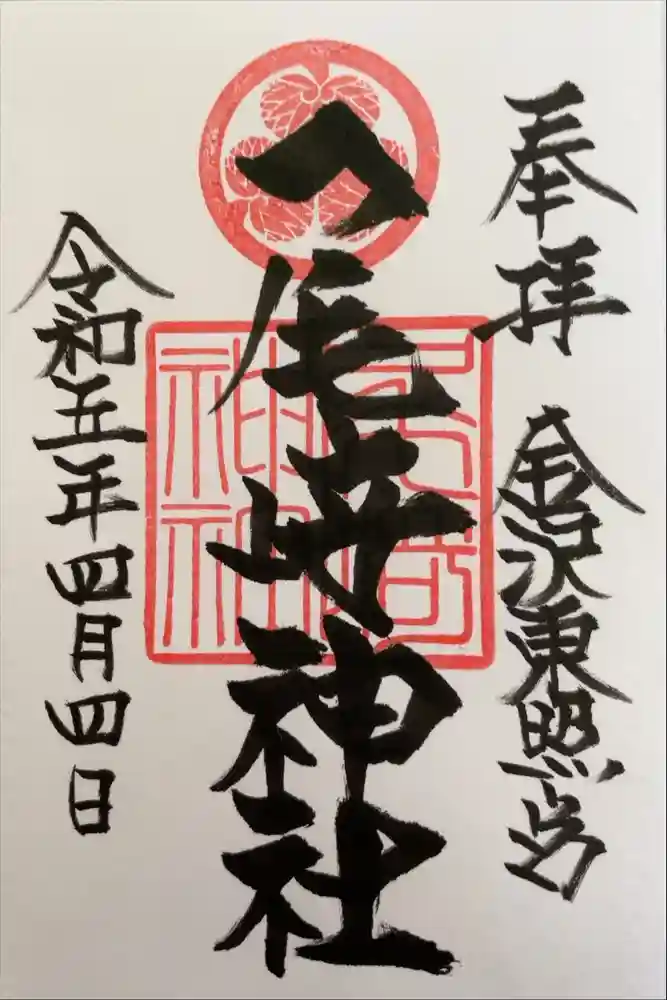 奉拝 金沢東照宮
尾崎神社
令和五年四月四日
尾崎
神社